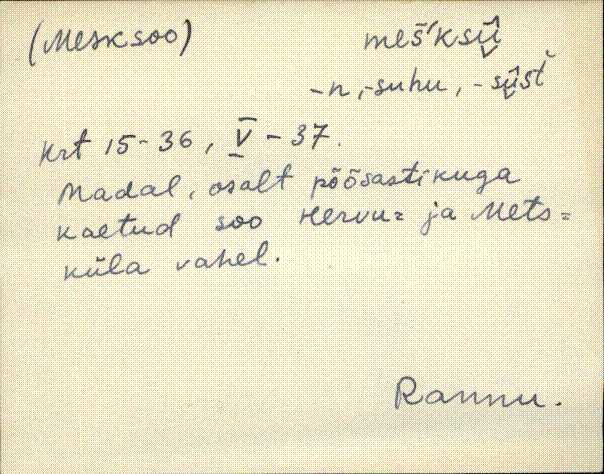 (Mesksoo) meš'ksū̬
-n, -suhu, -sū̬śt
Krt 15-36, V - 37.
Madal, osalt põõsastikuga
kaetud soo Hervu= ja Mets=
küla vahel.
Rannu.